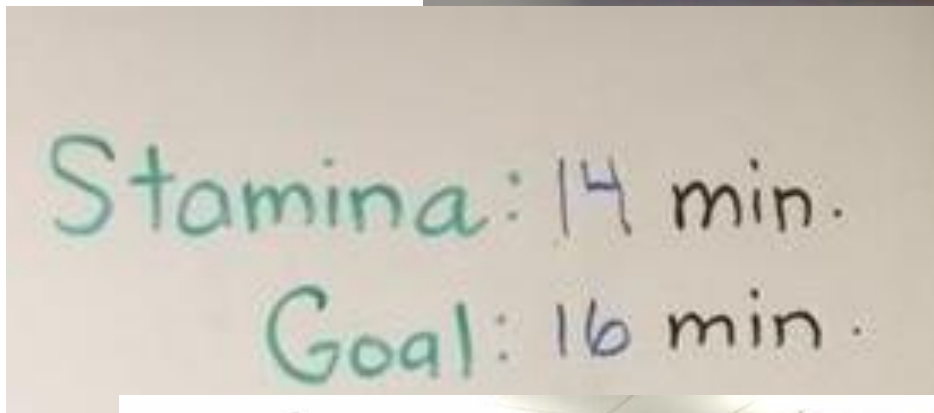 Stamina: 14 min.
Goal: 16 min.